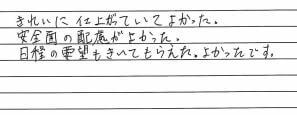 きれいに仕上がていてよかった。
安全面の配慮がよかった。
日程の要望もきいてもらえた。よかったです。